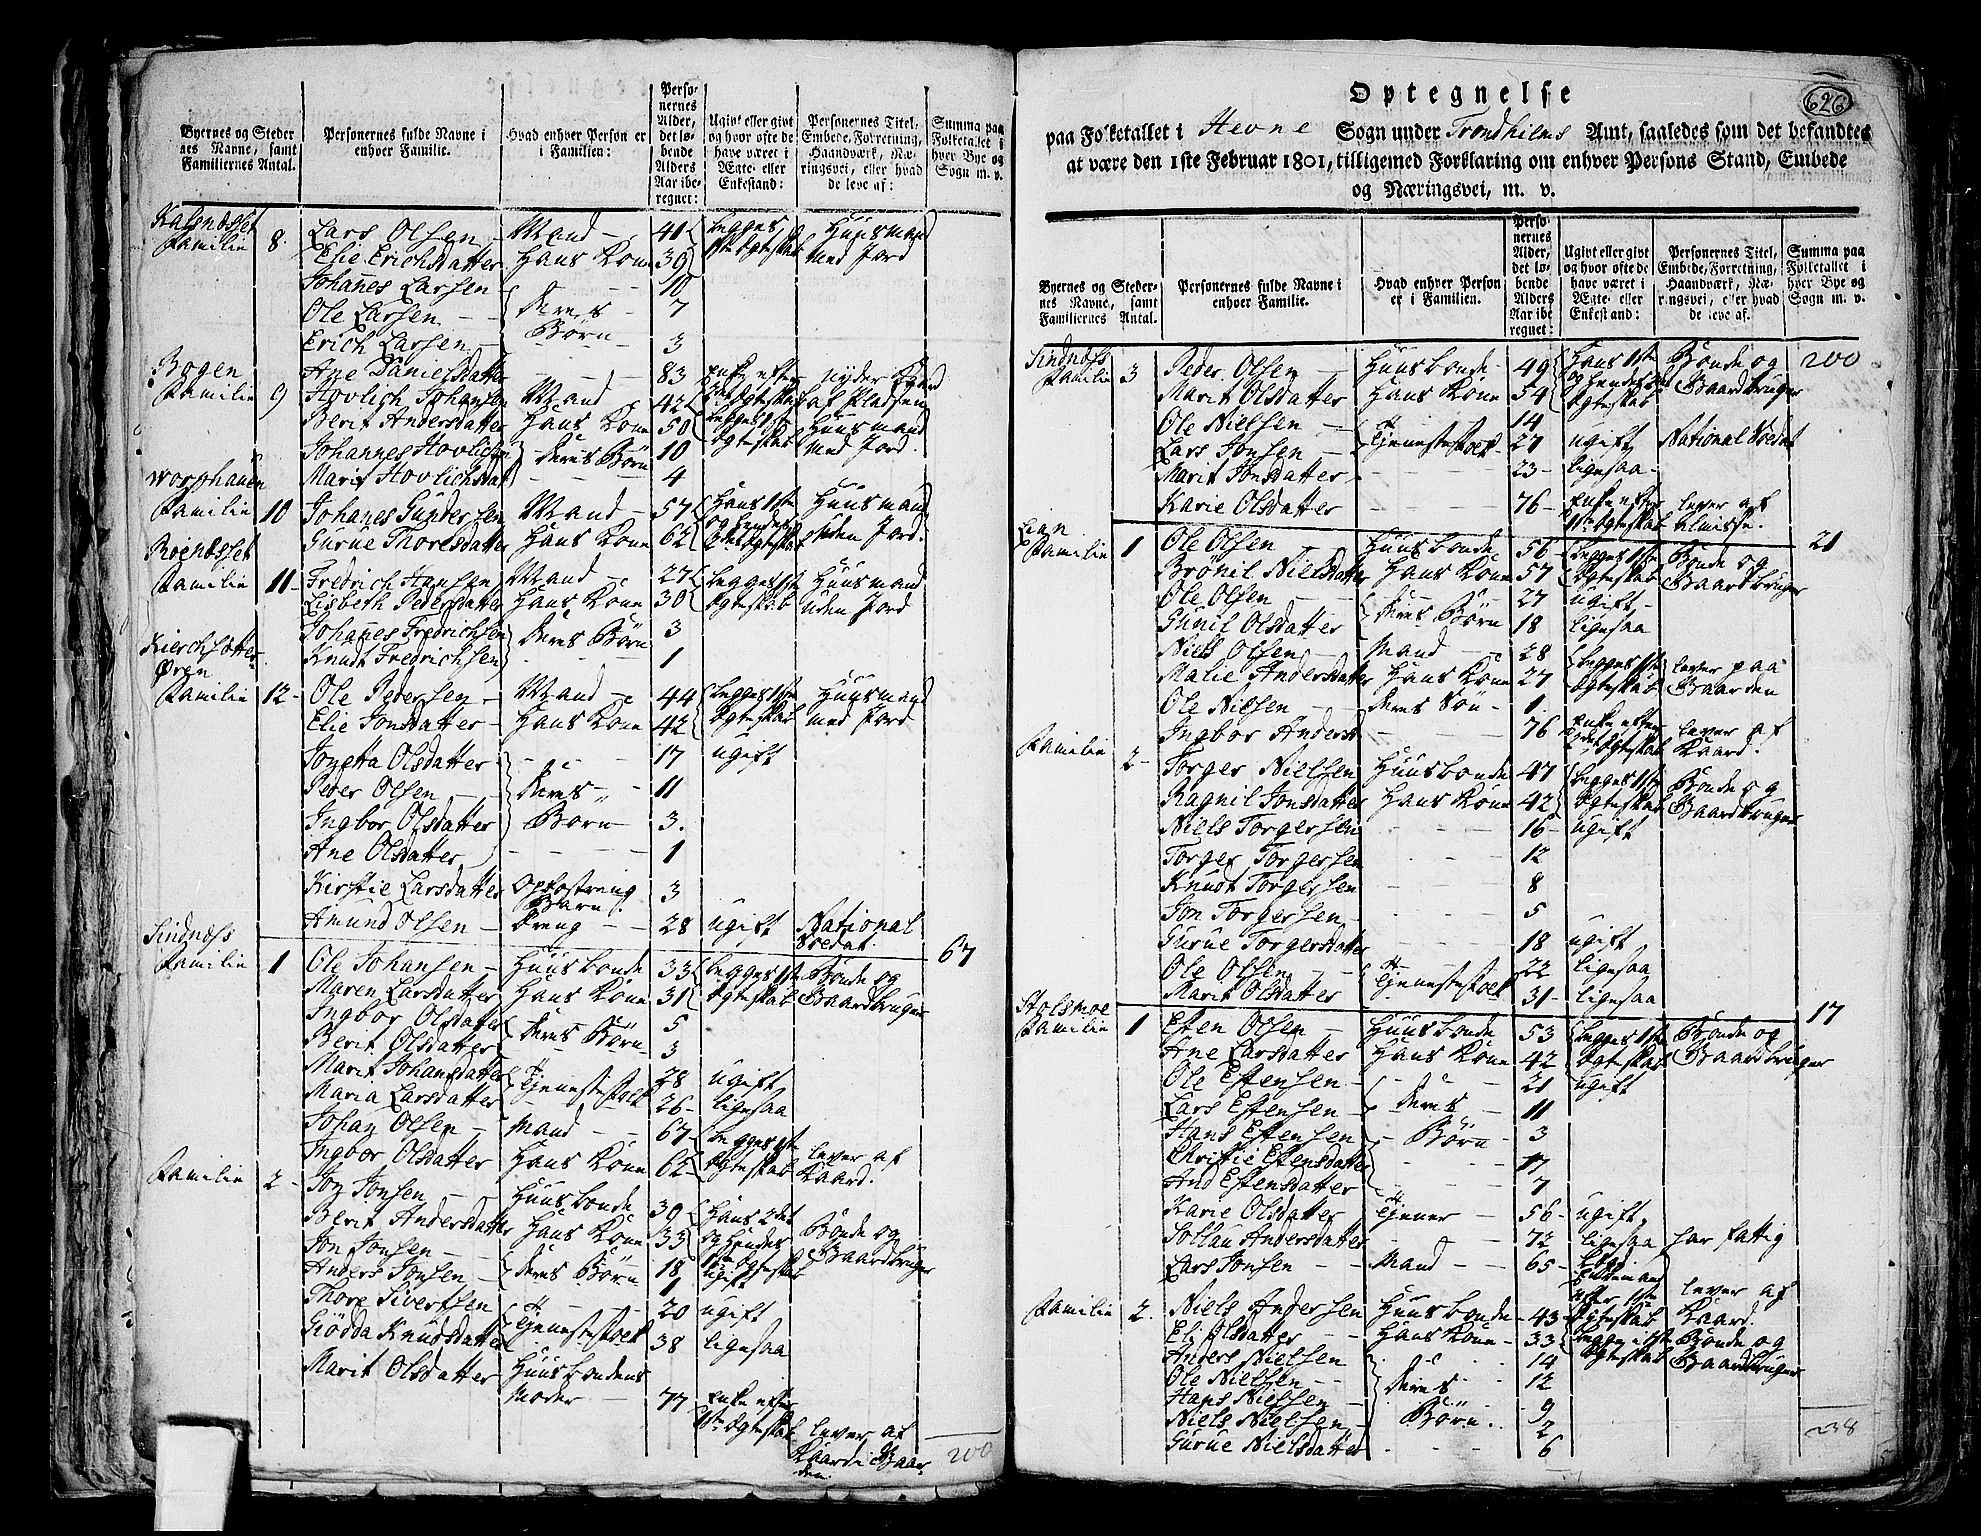 Byernes og Steder nes Navne, samt Familiernes Antal.
Personernes fulde Navne i enhver Familie.
Hvad enhver Person er i Familien:
Personernes Alder, det løbende Alders Aar iberegnet:
Ugivt eller givt og hvor ofte de have været i Ægte- eller Enkestand:
Personernes Titel, Embede, Forretning, Haandværk, Næringsvei, eller hvad de leve af:
Summa paa Folketallet i hver Bye og Sogn m. v.
Kalsnæsset
Familie 8. Lars Olsen Mand 41 begges Huusmand
Elie Erichsdatter Hans Kone 39 1ste Ægteskab med Jord
Johañes Larsen 10
Ole Larsen Deres 7
Erich Larsen Børn 3
Bogen Ane Danielsdatter 83 Enke efter nyder Kaard
Familie 9 Hovlich Johansen Mand 42 af Pladsen
Berit Andersdatter Hans Kone 50 Ægteskab Huusmand med Jord.
Johannes Hovlichsen Deres Børn 10
Marit Hovlichsdat 4
Familie 10 Johanes Gundersen Mand 57 Hans 1ste Huusmand
Gurue Thoresdatter Hans Kone 62 og hendes 2det Ægteskab uden Jord.
Familie 11 Fredrich Hansen Mand 27 begges 1ste Huusmand
Lisbeth Pedersdatter Hans Kone 30 Ægteskab uden Jord
Johañes Fredrichsen Deres Børn 3
Knudt Fredrichsen 1
Kierchsætter
Øren
Familie 12 Ole Pedersen Mand 44 begges 1ste Huusmand
Elie Jonsdatter Hans Kone 42 Ægteskab med Jord
Jonetta Olsdatter 17 ugift
Peder Olsen Deres 11
Ingbor Olsdatter Børn 3.
Ane Olsdatter 1
Kirstie Larsdatter Opfostrings Barn 3
Amund Olsen Dreng 28 ugift National Soldat.
Sindnæss 67
Familie 1 Ole Johansen Huusbonde 33 begges 1ste Bonde og
Maren Larsdatter Hans Kone 31 Ægteskab Gaardbruger
Ingbor Olsdatter Deres Børn 5
Berit Olsdatter 3
Marit Johansdatter Tjenestefolk 28 ugift
Maria Larsdatter 26 ligesaa
Johan Olsen Mand 67 begges 1ste lever af
Ingbor Olsdatter Hans Kone 62 Ægteskab Kaard.
Familie 2 Jon Jonsen Huusbonde 39 Hans 2det
Berit Andersdatter Hans Kone 33 og Hendes 1ste Ægteskab Bonde og Gaardbruger
Jon Jonsen Deres Børn 18 ugift
Anders Jonsen 1
Thore Sivertsen Tjenestefolk 20 ugift
Giødda Knudsdatter 38 ligesaa
Marit Olsdatter Huusbondens Moder 77 Enke efter 1ste Ægteskab lever af Kaard i Gaarden
200
626
Optegnelse
paa Folketallet i Hevne Sogn under Trondhiems Amt, saaledes som det befandtes
at være den 1ste Februar 1801, tilligemed Forklaring om enhver Persons Stand, Embede
og Næringsvei, m. v.
Byernes og Stedernes Navne, samt Familiernes Antal.
Personernes fulde Navne i enhver Familie.
Hvad enhver Person er i Familien.
Personernes Alder, det løbende Alders Aar iberegnet:
Ugivt eller givt og hvor ofte de have været i Ægte- eller Enkestand:
Personernes Titel, Embede, Forretning, Haandværk, Næringsvei, eller hvad de leve af.
Summa paa Folketallet i hver Bye og Sogn m. v.
Sindnæss 200
Familie 3 Peder Olsen Huusbonde 49 Hans 1ste Bonde og
Marit Olsdatter Hans Kone 54 Ægteskab Gaardbruger
Ole Nielsen 14
Lars Jonsen Tjenestefolk 27 ugift National Soldat
Marit Jonsdatter 23 ligesaa
Karie Olsdatter 76 Enke efter 1ste Ægteskab lever af Almisse.
Lian 21
Familie 1 Ole Olsen Huusbonde 56 begges 1ste Bonde og
Brønil Nielsdatter Hans Kone 57 Ægteskab Gaardbruger
Ole Olsen Deres Børn 27 ugift
Gunil Olsdatter 18 ligesaa
Niels Olsen Mand 28 begges 1ste lever paa
Malie Andersdatter Hans Kone 27 Ægteskab Gaarden
Ole Nielsen Deres Søn 1.
Ingbor Andersd 76 Enke efter 2det Ægteskab lever af Kaard.
Familie 2 Torger Nielsen Huusbonde 47 begges 1ste Bonde og
Ragnil Jonsdatter Hans Kone 42 Ægteskab Gaardbruger
Niels Torgersen 16 ugift
Torger Torgersen 12
Knudt Torgersen 8
Jon Torgersen 5
Gurue Torgersdatter 18 ugift
Ole Olsen Tjenestefolk 22 ligesaa
Marit Olsdatter 31 ligesaa
Stolsmoe 17
Familie 1 Esten Olsen Huusbonde 53 begges 1ste Bonde og
Ane Larsdatter Hans Kone 42 Ægteskab Gaardbruger
Ole Estensen 21 ugift
Lars Estensen Deres 11
Hans Estensen Børn 3
Christie Estensdatter 17
And Estensdatter 7
Karie Olsdatter Tjener 56 ugift,
Sollau Andersdatter 72 ligesaa har fattig
Lars Jonsen Mand 65 Enkemand efter 1ste Ægteskab lever af Kaard.
Familie 2. Niels Andersen Huusbonde 43 begge i 1ste Bonde og
Eli Olsdatter Hans Kone 33 Ægteskab Gaardbruger
Anders Nielsen 14
Ole Nielsen Deres 12
Hans Nielsen Børn. 9
Niels Nielsen 2
Gurue Nielsdatter 6
238